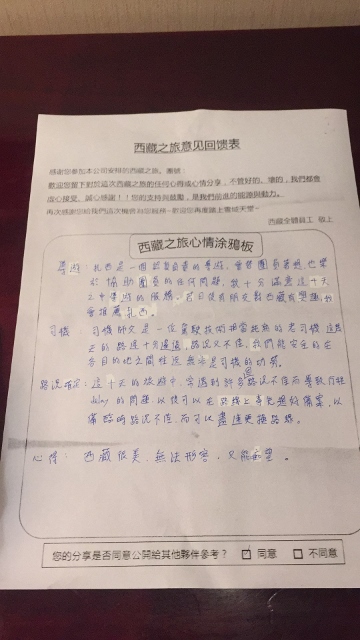 西藏之旅意见回馈表
感謝您參加本公司安排的西藏之旅。團號:
歡迎您留下對於這次西藏之旅的任何心得或心情分享，不管好的、壞的，我們都會
虛心接受、誠心感謝！！您的支持與鼓勵，是我們前進的能源與動力。
再次感謝您給我們這次機會為您服務~歡迎您再度踏上雪域天堂~
西藏全體員工 敬上
西藏之旅心情涂鴉板
導遊: 扎西是一個認真負責的導遊，會替團員著想，也樂
於協助團員的任何問題，我十分滿意這十天
之中導遊的服務，若日後有朋友對西藏有興趣，我
會推薦扎西。
司機: 司機師父是一位駕駛技術相當純熟的老司機
的路途十分遙遠，路況又不佳，我們能安全的在
各目的地之間往返無非是司機的功勞。
路況情況: 這十天的旅遊中，常遇到許多路況不佳而導致行程
delay的問題，以後可以在路線上事先擬好備案，以
備臨時路況不佳，而可以盡速更換路線。
心得: 西藏很美，無法形容，只能
您的分享是否同意公開給其他夥伴參考？ ☑ 同意 ☐ 不同意